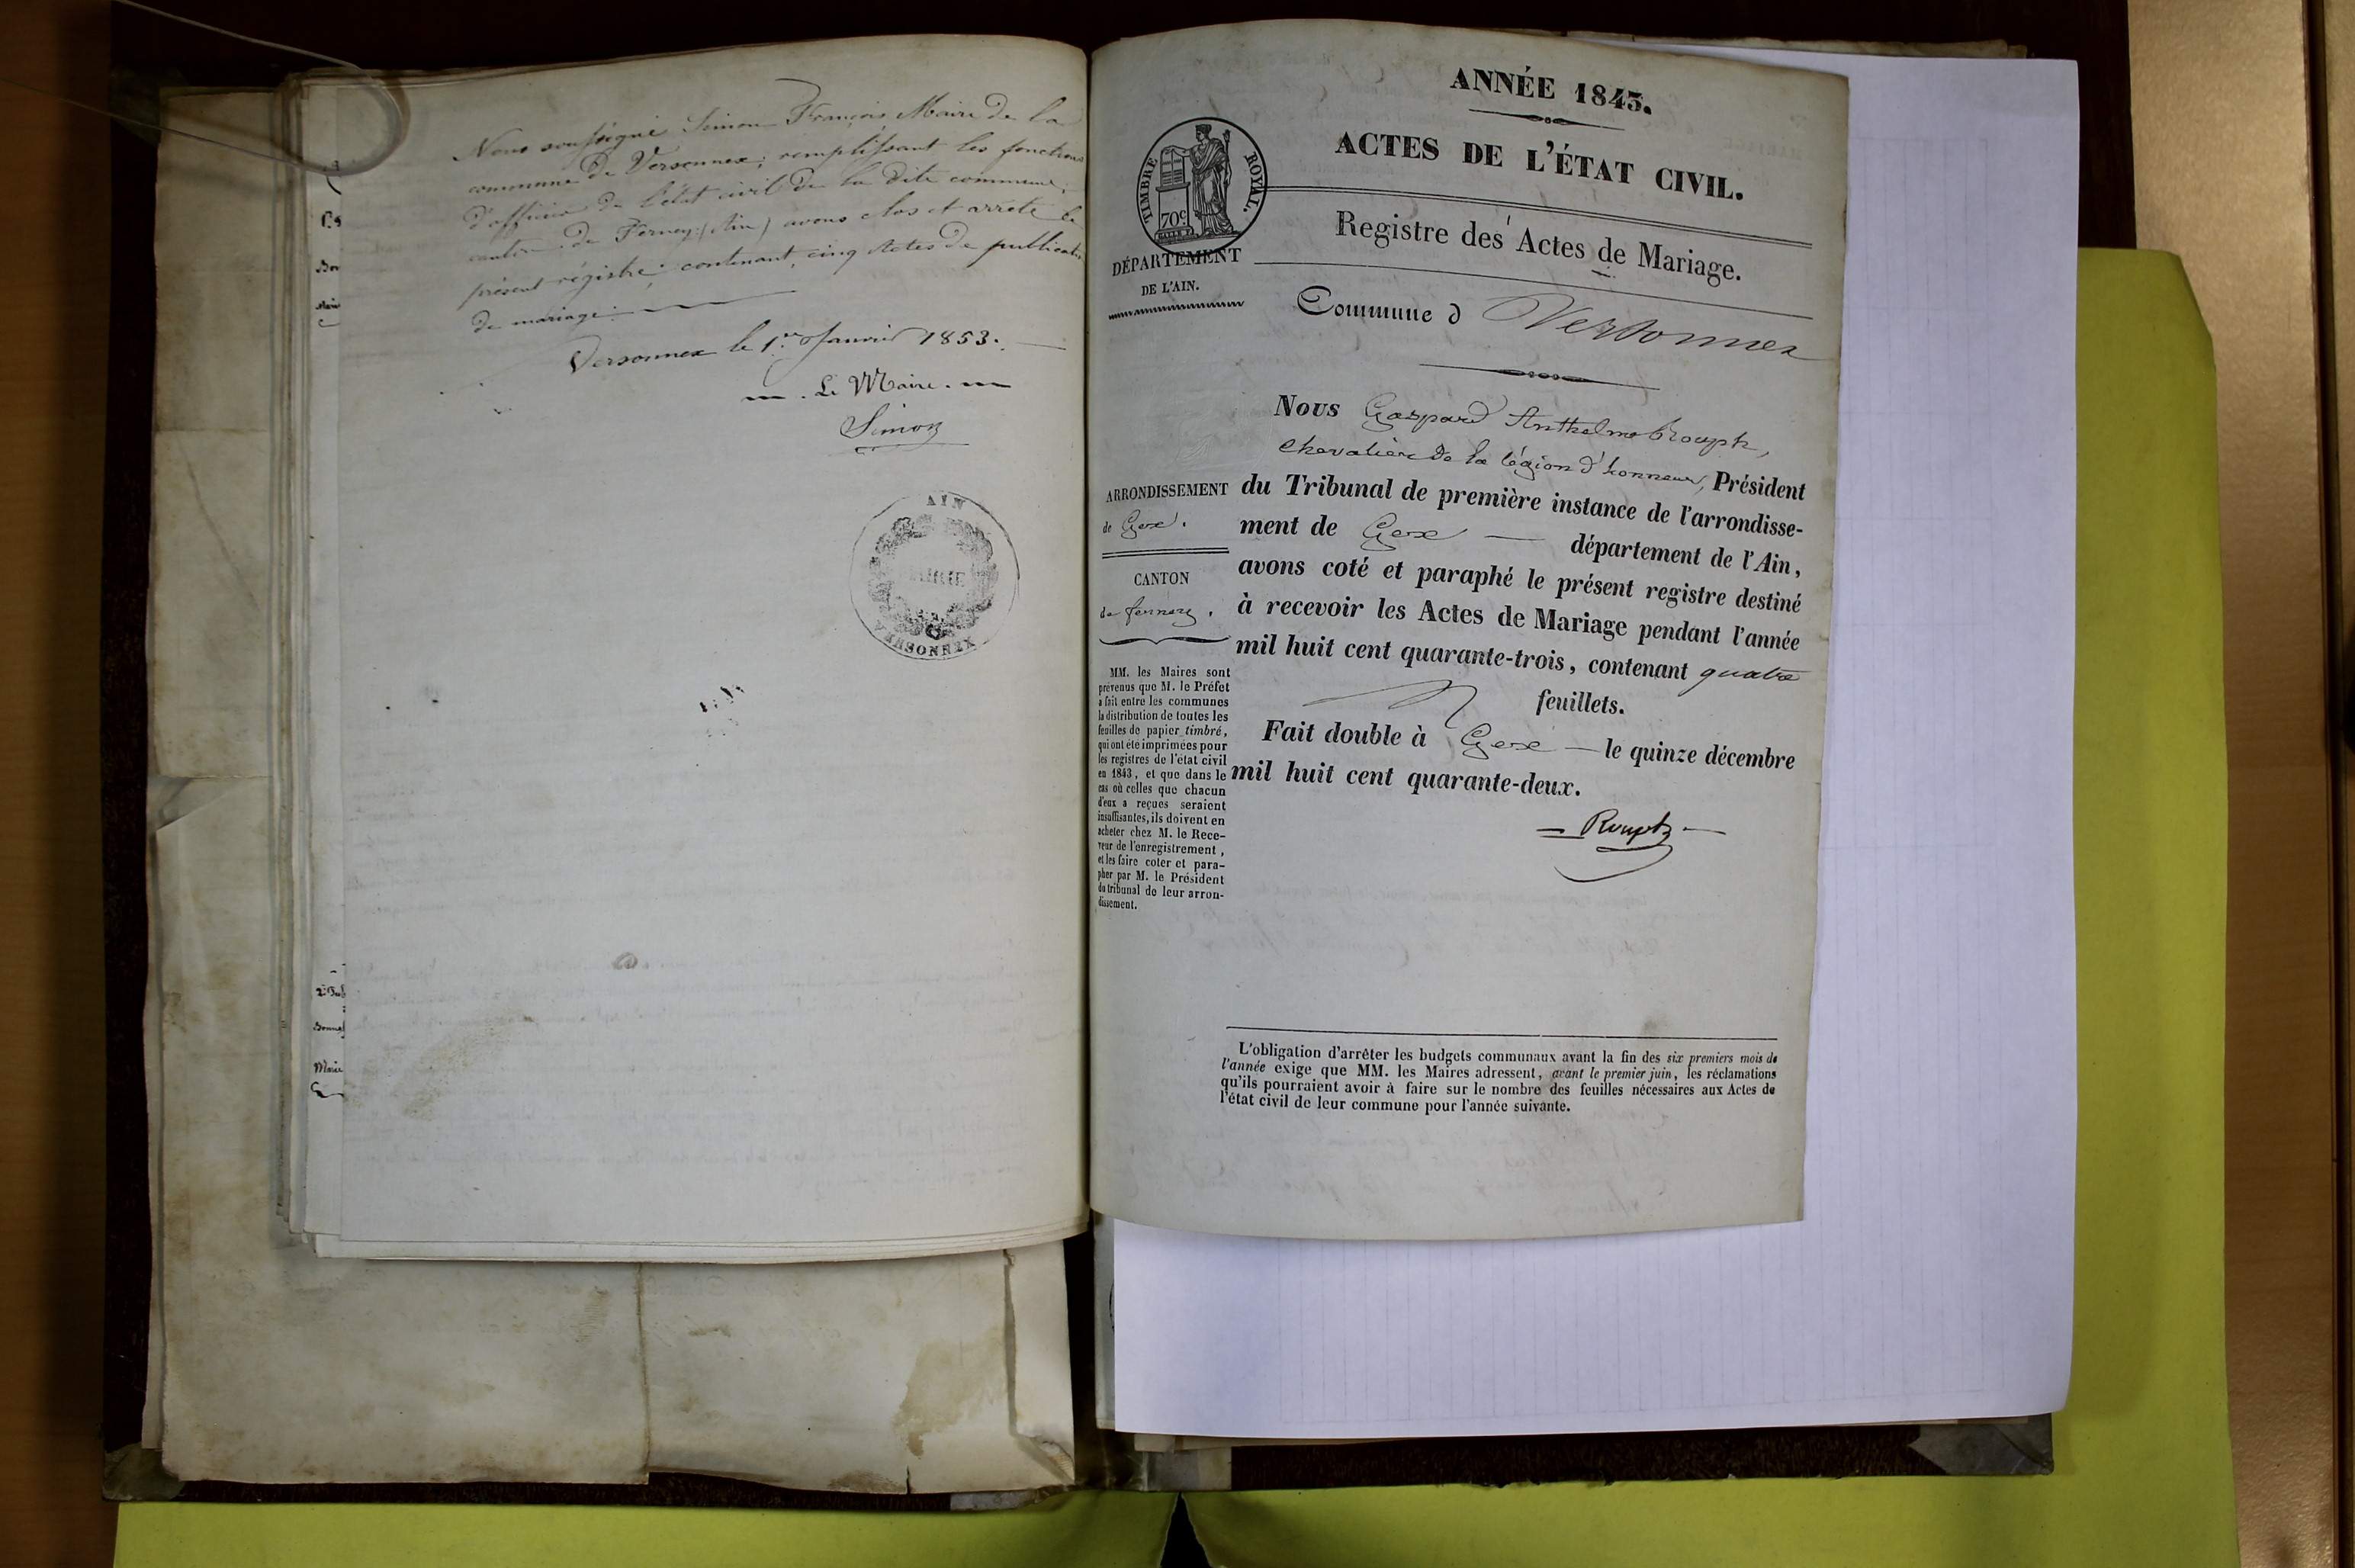 Nous soussigné Simon François Maire de la
commune de Versonnex; remplissant les fonctions
d'officier de l'état civil de la dite commune,
canton de Ferney (Ain) avons clos et arrêté le
présent régistre; contenant, cinq Actes de publication
de mariage.
Versonnex le 1er Janvier 1853.
Le Maire.
Simon
AIN
MAIRIE
VERSONNEX
ANNÉE 1843.
ACTES DE L'ÉTAT CIVIL.
TIMBRE ROYAL.
70c
Registre des Actes de Mariage.
DÉPARTEMENT
DE L'AIN.
Commune d Versonnex
Nous Gaspard Anthelme Rouph,
chevalier de la légion d'honneur, Président
du Tribunal de première instance de l'arrondisse-
ment de Gex — département de l'Ain,
avons coté et paraphé le présent registre destiné
à recevoir les Actes de Mariage pendant l'année
mil huit cent quarante-trois, contenant quatre
feuillets.
Fait double à Gex — le quinze décembre
mil huit cent quarante-deux.
Rouph
ARRONDISSEMENT
de Gex.
CANTON
de ferney.
MM. les Maires sont
prévenus que M. le Préfet
a fait entre les communes
la distribution de toutes les
feuilles de papier timbré,
qui ont été imprimées pour
les registres de l'état civil
en 1843, et que dans le
cas où celles que chacun
d'eux a reçues seraient
insuffisantes, ils doivent en
acheter chez M. le Rece-
veur de l'enregistrement,
et les faire coter et para-
pher par M. le Président
du tribunal de leur arron-
dissement.
L'obligation d'arrêter les budgets communaux avant la fin des six premiers mois de
l'année exige que MM. les Maires adressent, avant le premier juin, les réclamations
qu'ils pourraient avoir à faire sur le nombre des feuilles nécessaires aux Actes de
l'état civil de leur commune pour l'année suivante.